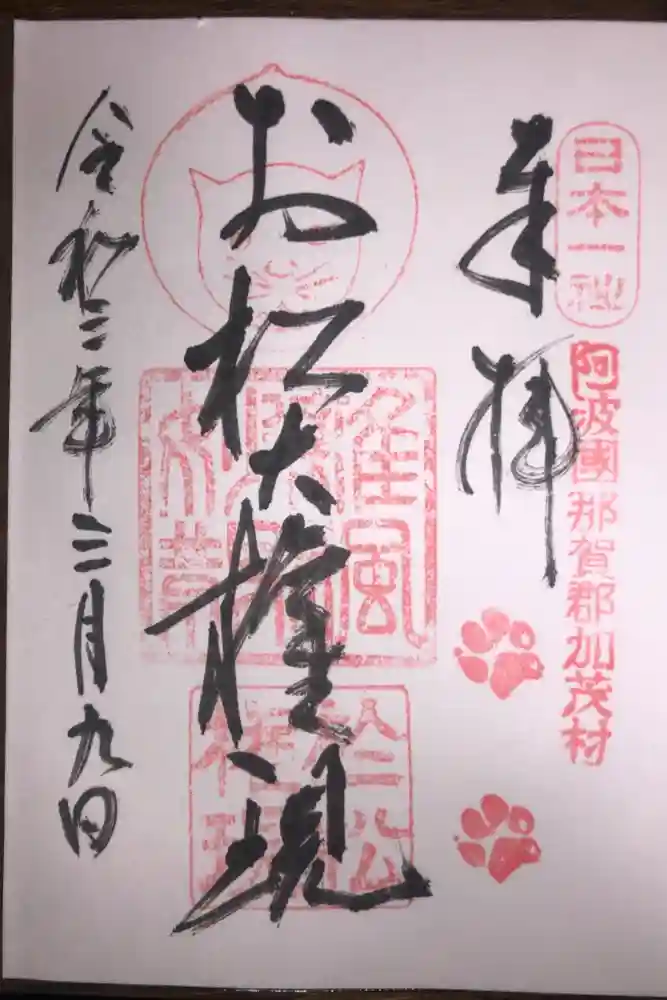 日本一社
阿波國那賀郡加茂村
奉拝
お松大権現
令和三年三月九日